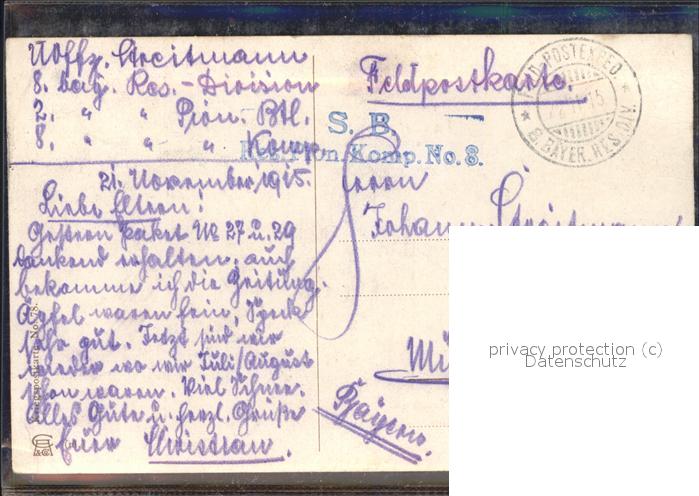 Uoffz. Streitmann
8. bayr. Res.-Division
2. " " Pion. Btl.
8. " " " Komp.
Feldpostkarte.
FELD-POSTEXPED.
8. BAYER. RES. DIV.
S. B.
Res. Pion. Komp. No. 8.
21. November 1915.
Liebe Eltern!
Gestern Paket No 27 u. 29
dankend erhalten, auch
bekomme ich die Zeitung.
Äpfel waren fein, Speck
sehr gut. Jetzt sind wir
wieder wo wir Juli/August
schon waren. Viel Schnee.
Alles Gute u. herzl. Grüße
Euer Christian.
Herrn
Johann Streitmann
Mü
Bayern.
Kriegspostkarte No. 78.
privacy protection (c)
Datenschutz